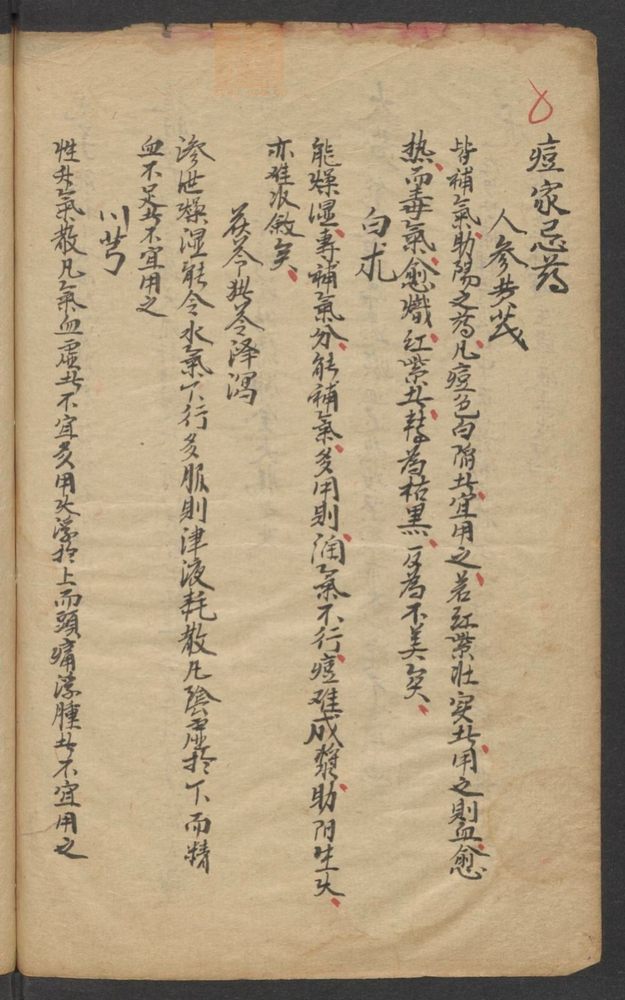 痘家忌药
人參芪茂
皆補氣助陽之药凡痘色白陷者宜用之若红紫壮实者用之則血愈
热而毒氣愈熾红紫者轉為枯黑反為不美矣
白朮
能燥湿專補氣分能補氣多用則潤氣不行痘难成漿助阳生火
亦难收斂矣
茯苓猪苓泽瀉
渗泄燥湿能令水氣下行多服則津液耗散凡陰虚於下而精
血不足者不宜用之
川芎
性升氣散凡氣血虛者不宜多用火浮於上而頭痛浮腫者不宜用之